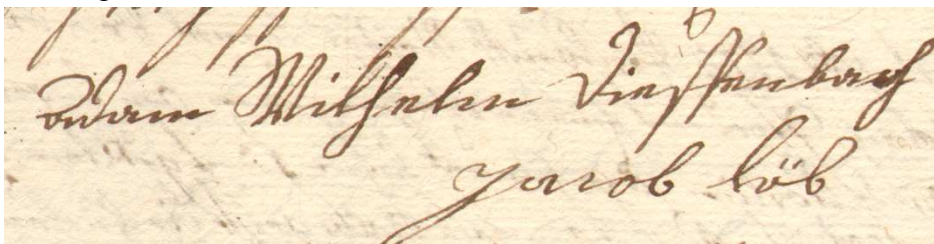 Adam Wilhelm Dieffenbach
Jacob Löb